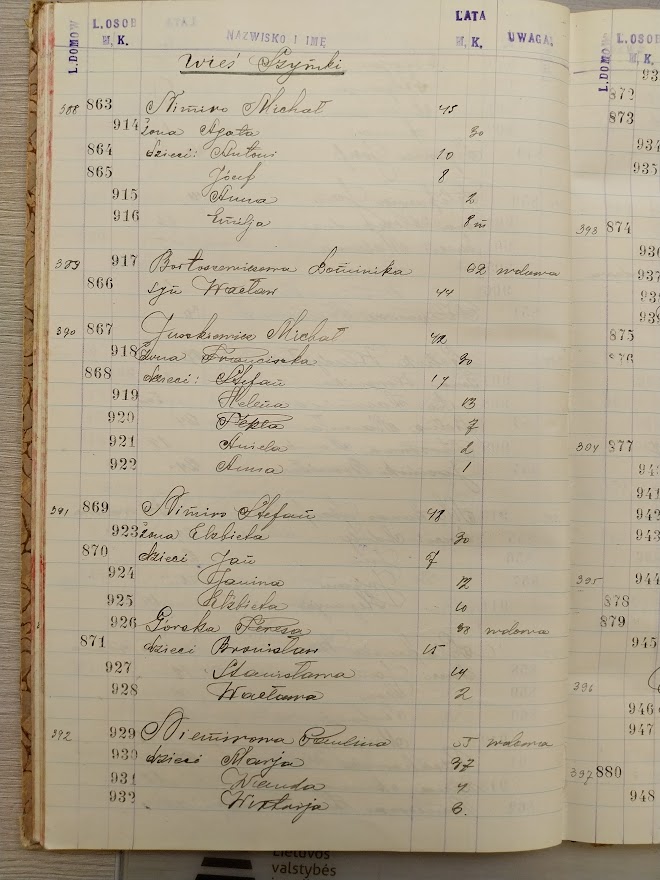 L.DOMOW L.OSOB M, K. NAZWISKO I IMĘ LATA M, K. UWAGA:
Wieś Szyńki
388 863 Nimiro Michał 45
914 żona Agata 30
864 dzieci: Antoni 10
865 Józef 8
915 Anna 2
916 Emilja 8 m
389 917 Bortoszewiczowa Dominika 62 wdowa
866 syn Wacław 44
390 867 Juszkiewicz Michał 42
918 żona Franciszka 30
868 dzieci: Stefan 17
919 Helena 13
920 Tekla 7
921 Aniela 2
922 Anna 1
391 869 Nimiro Stefan 48
923 żona Elzbieta 30
870 dzieci Jan 7
924 Janina 12
925 Elzbieta 10
926 Gorska Teresa 38 wdowa
871 dzieci Bronisław 15
927 Stanisława 14
928 Wacława 2
392 929 Niemirowa Paulina 55 wdowa
930 dzieci Marja 37
931 Wanda 4
932 Wiktorja 3.
L.DOMOW L.OSOB M, K.
872
873
934
935
393 874
937
875
394 877
941
942
943
395 944
878
879
945
396
946
947
397 880
948
Lietuvos
valstybės